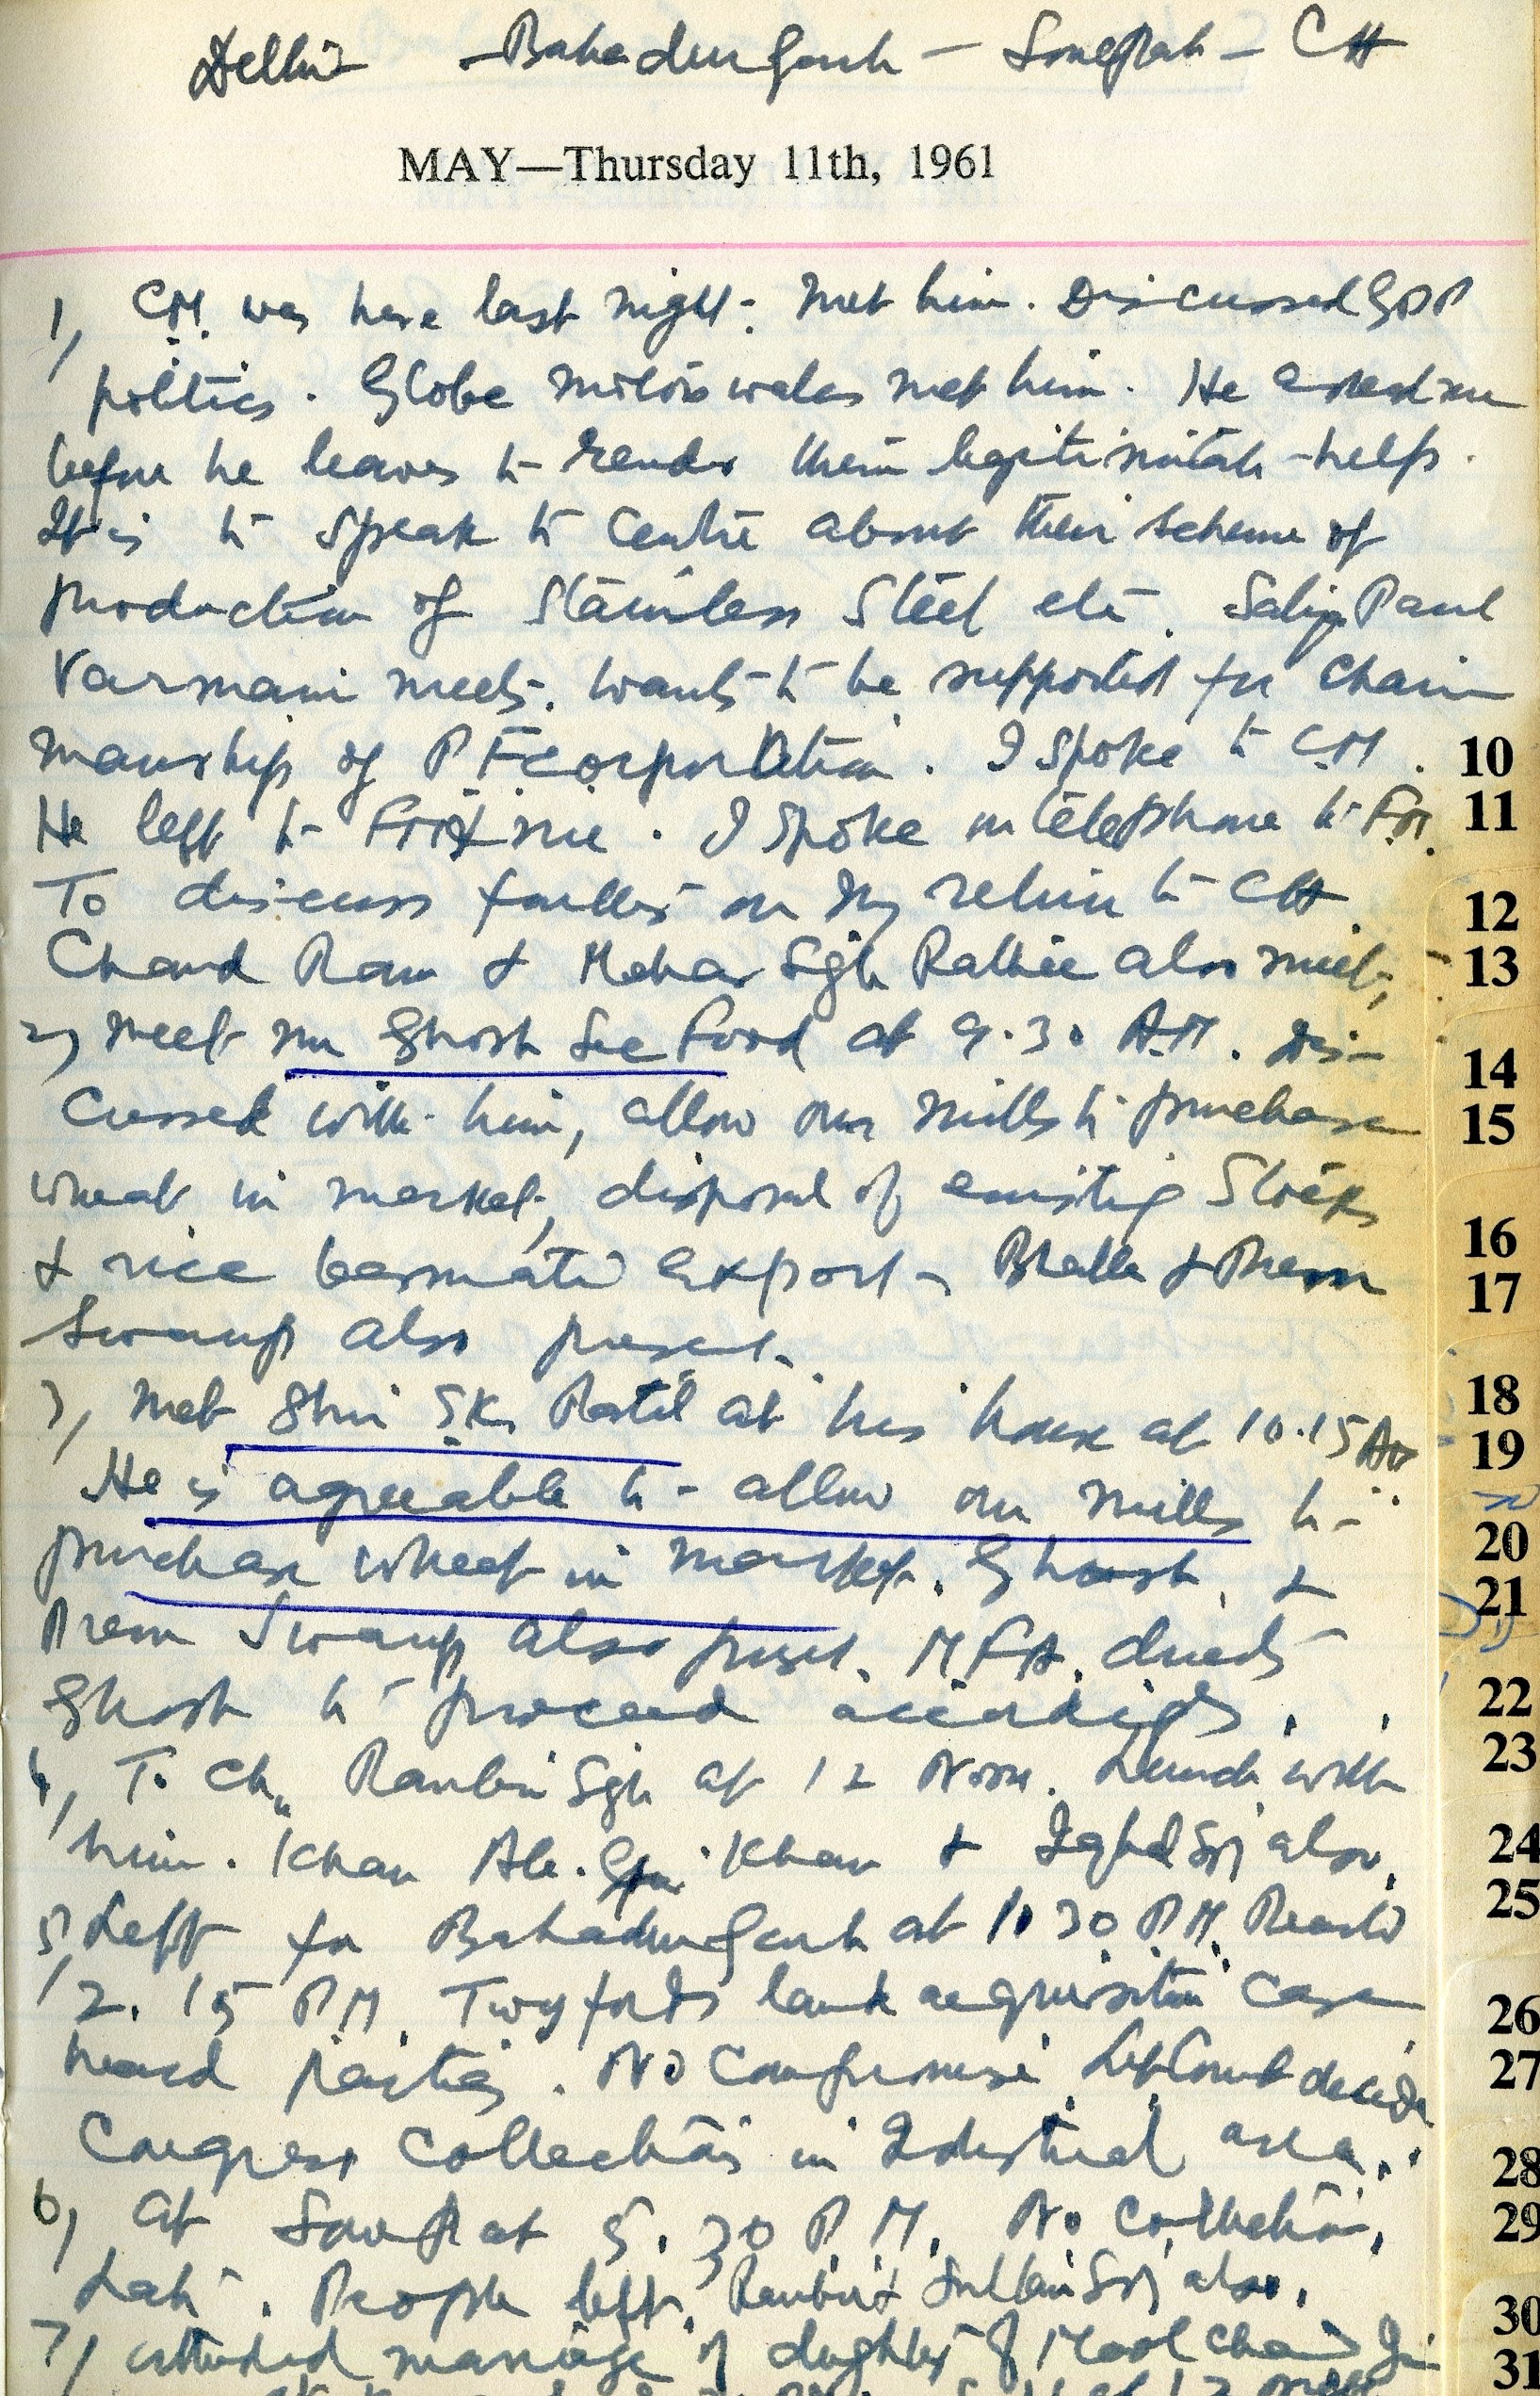 Delhi - Bahadurgarh - Sonepat - CH
MAY—Thursday 11th, 1961
1, C.M. was here last night. Met him. Discussed
politics. Globe Motors walas met him. He asked me
before he leaves to render them legitimitate help.
It is to speak to Centre about their scheme of
production of Stainless Steel etc. Paul
Varmani meets. Wants to be supported for Chair
manship of P F Corporation. I spoke to C.M.
He left to me. I spoke on telephone to F.M.
To discuss further on my return to CH
Chand Ram & Mehar Sgh Rathee also meet,
2, Meet Mr Ghosh Sec Food at 9.30 A.M. Dis-
cussed with him, allow our mills to purchase
wheat in market, disposal of existing Stocks
& rice basmati export - Bhalla & Prem
Swarup also present.
3, Met Shri S.K. Patil at his house at 10.15 AM
He is agreeable to - allow our mills to -
purchase wheat in market. Ghosh, &
Prem Swarup also present. M F A. directs
Ghosh to proceed accordingly.
4, To Ch. Ranbir Sgh at 12 Noon. Lunch with
him. Khan Ab. Khan & also.
5, Left for Bahadurgarh at 1.30 P.M. Reached
2.15 P.M. Twyfords land acquisition case
heard parties. No compromise. Let Court decide
Congress Collections in Industrial area.
6, At Sonepat 5.30 P.M. No Collection,
Late. People left. Ranbir & also.
7, attended marriage of daughter of Mool Chand Jain
10
11
12
13
14
15
16
17
18
19
20
21
22
23
24
25
26
27
28
29
30
31